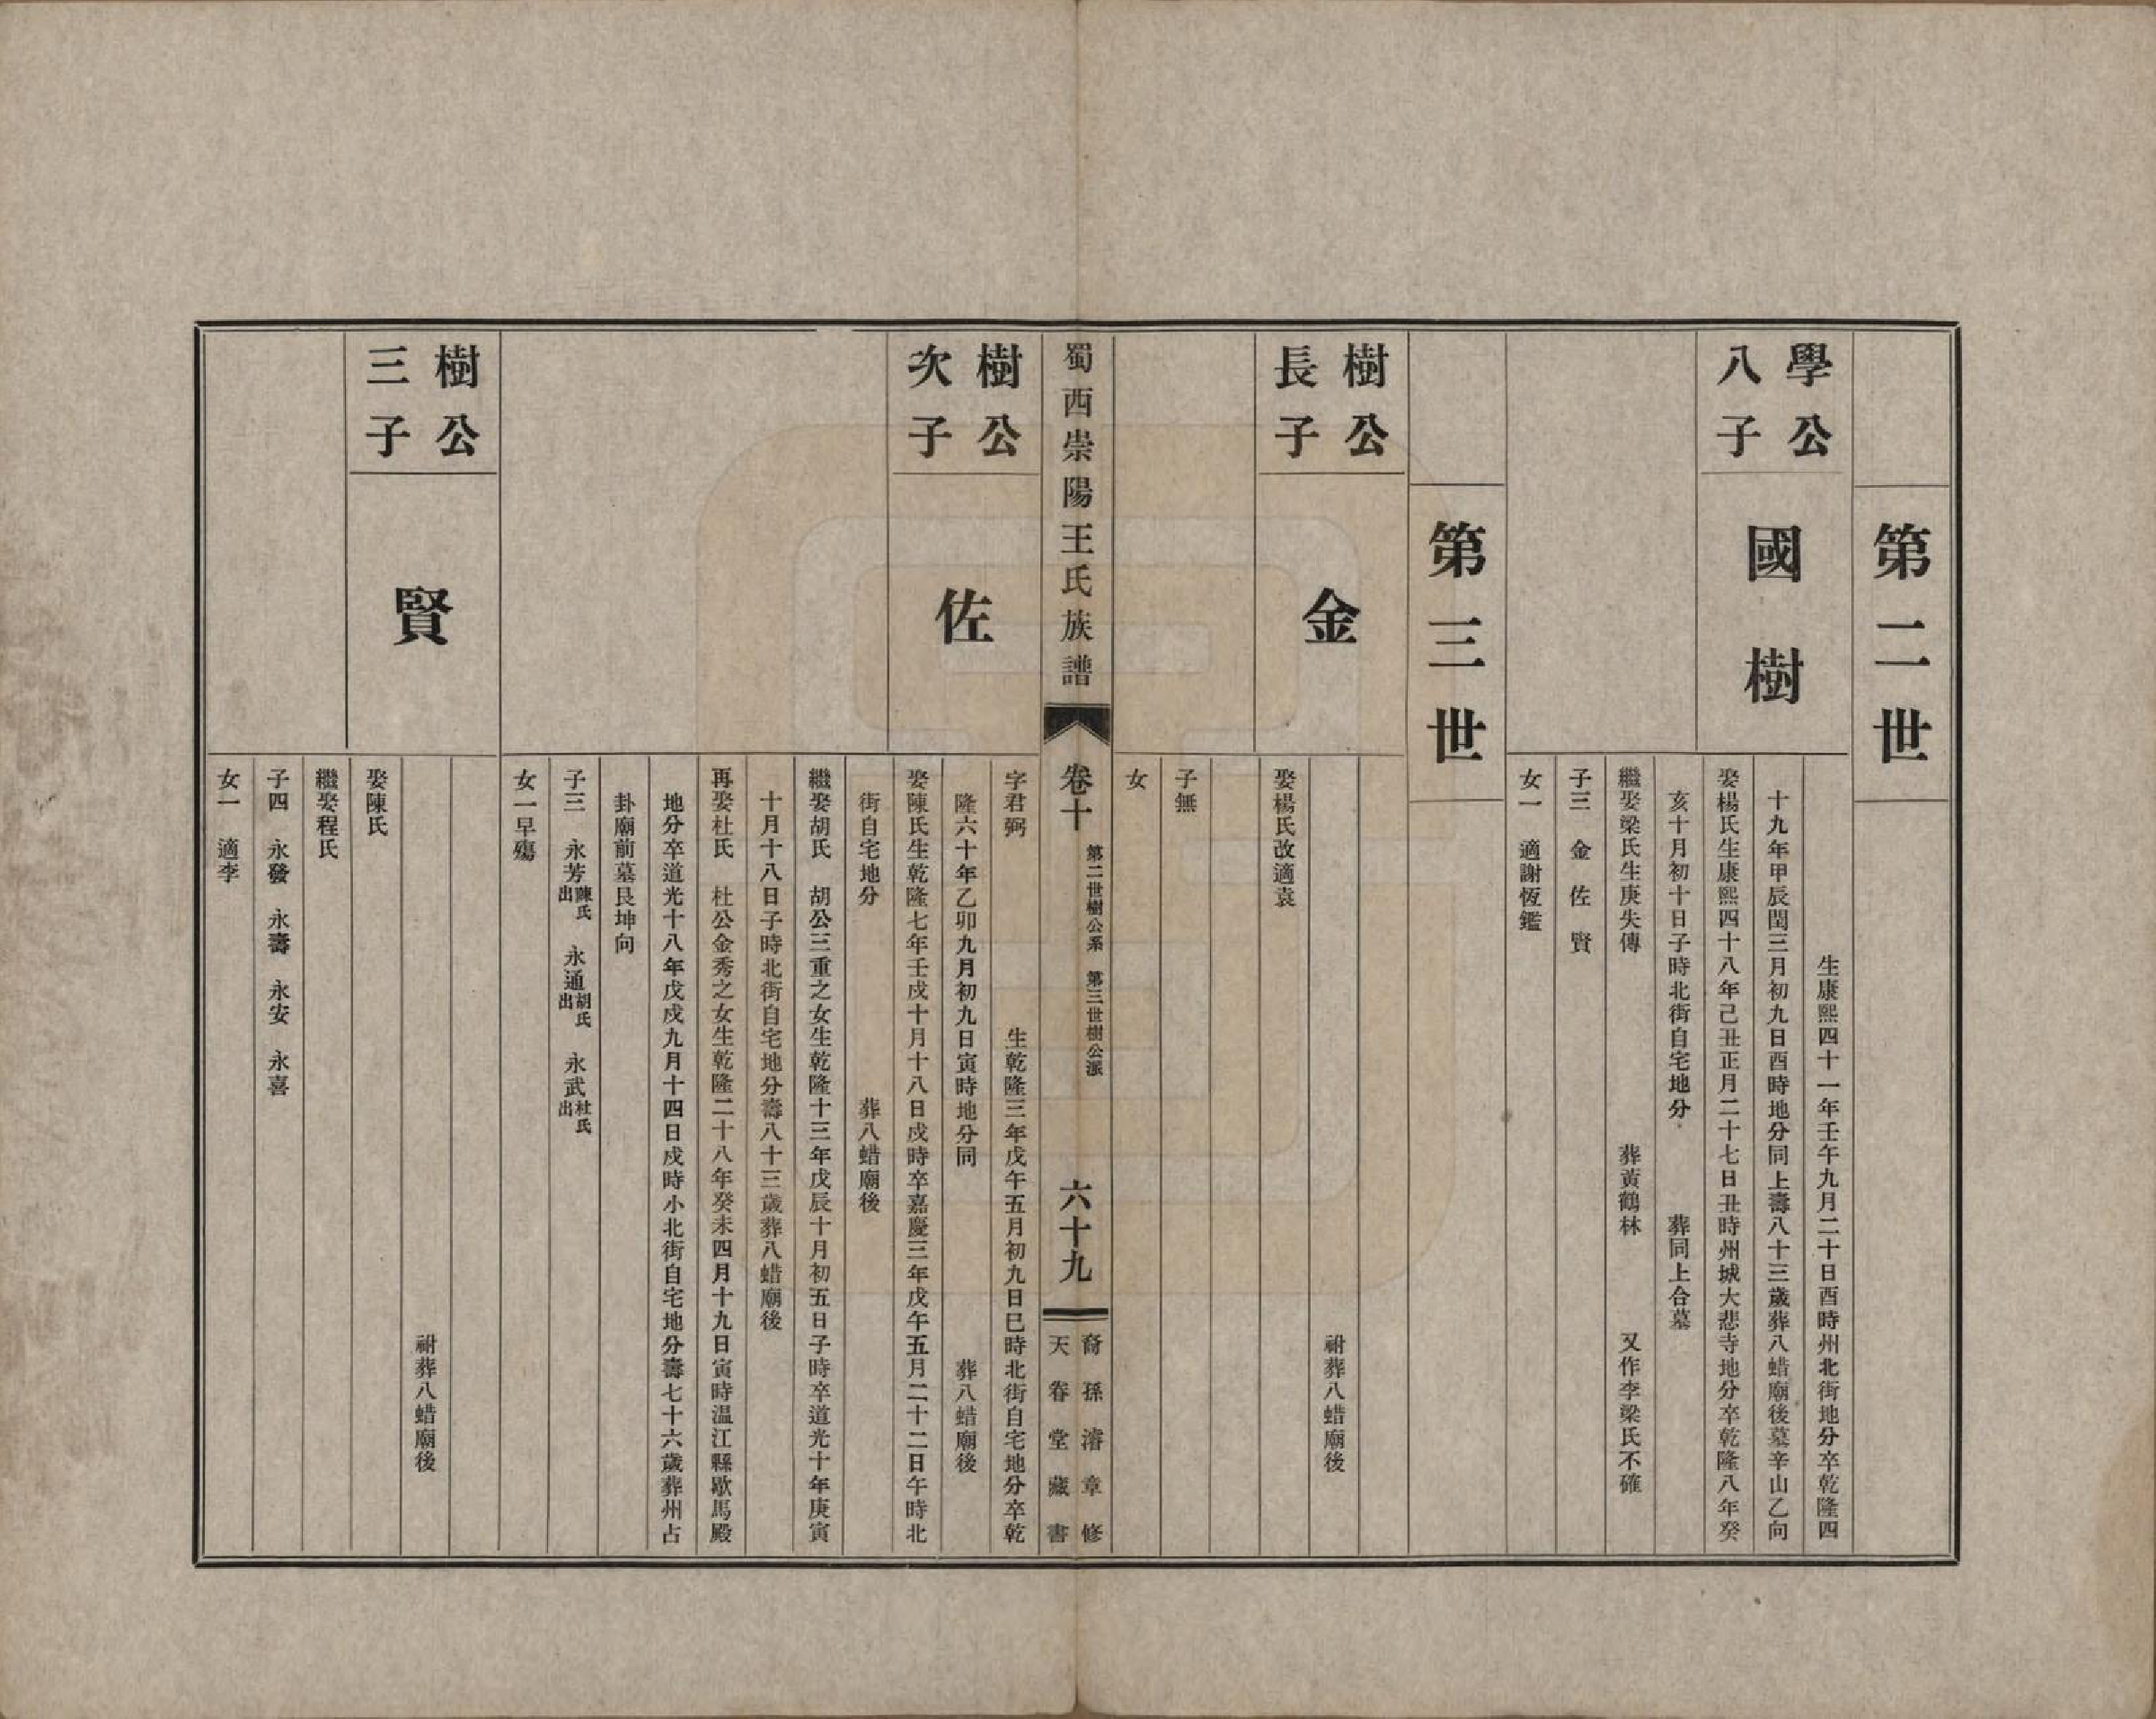 第二世
學公
八子
國樹
生康熙四十一年壬午九月二十日酉時州北街地分卒乾隆四
十九年甲辰閏三月初九日酉時地分同上壽八十三歲葬八蜡廟後墓辛山乙向
娶楊氏生康熙四十八年己丑正月二十七日丑時州城大悲寺地分卒乾隆八年癸
亥十月初十日子時北街自宅地分 葬同上合墓
繼娶梁氏生庚失傳 葬黃鶴林 又作李梁氏不確
子三 金 佐 賢
女一 適謝恆鑑
第三世
樹公
長子
金
祔葬八蜡廟後
娶楊氏改適袁
子無
女
蜀西崇陽王氏族譜
卷十
第二世樹公系 第三世樹公派
六十九
裔孫濬章修
天眷堂藏書
樹公
次子
佐
字君弼 生乾隆三年戊午五月初九日巳時北街自宅地分卒乾
隆六十年乙卯九月初九日寅時地分同 葬八蜡廟後
娶陳氏生乾隆七年壬戌十月十八日戌時卒嘉慶三年戊午五月二十二日午時北
街自宅地分 葬八蜡廟後
繼娶胡氏 胡公三重之女生乾隆十三年戊辰十月初五日子時卒道光十年庚寅
十月十八日子時北街自宅地分壽八十三歲葬八蜡廟後
再娶杜氏 杜公金秀之女生乾隆二十八年癸未四月十九日寅時温江縣歇馬殿
地分卒道光十八年戊戌九月十四日戌時小北街自宅地分壽七十六歲葬州占
卦廟前墓艮坤向
子三 永芳陳氏出 永通胡氏出 永武杜氏出
女一早殤
樹公
三子
賢
祔葬八蜡廟後
娶陳氏
繼娶程氏
子四 永發 永壽 永安 永喜
女一 適李